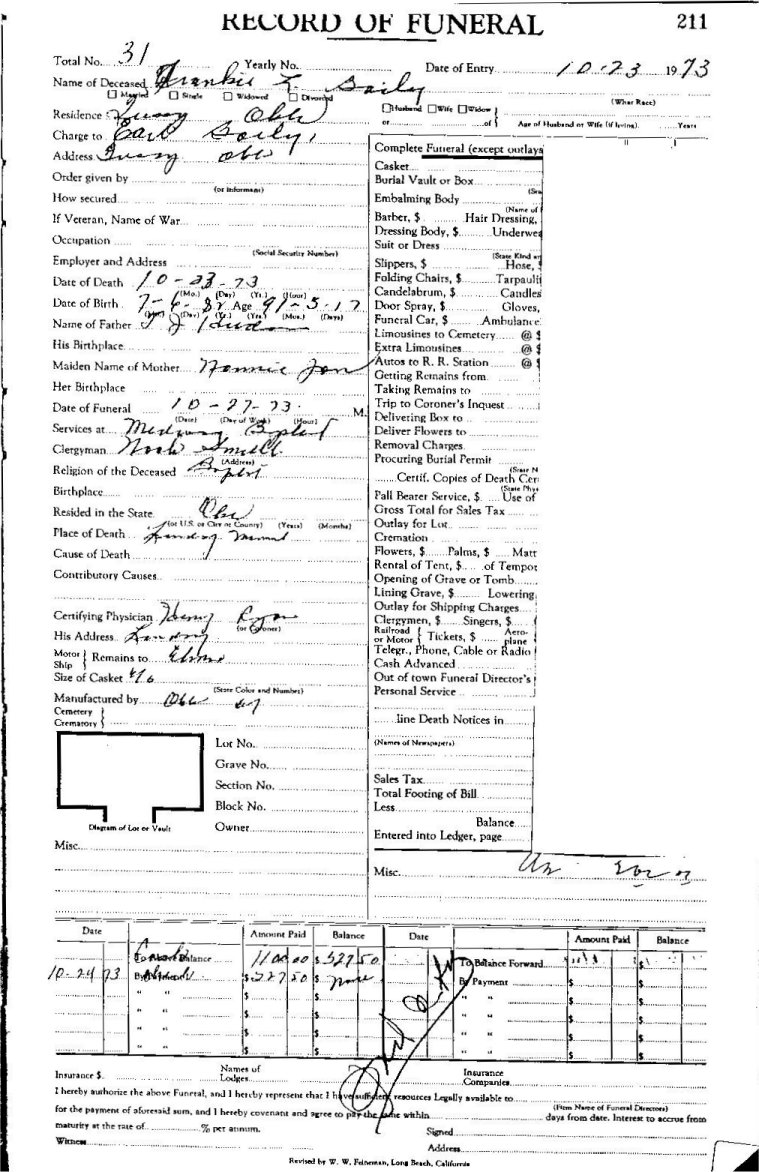 RECORD OF FUNERAL 211
Total No. 31 Yearly No. Date of Entry 10-23 1973
Name of Deceased Frankie L. Baily (What Race)
Married Single Widowed Divorced Husband Wife Widow
or of Age of Husband or Wife (if living) Years
Residence
Charge to Earl Baily
Address
Order given by
(or informant)
How secured
If Veteran, Name of War
Occupation
(Social Security Number)
Employer and Address
Date of Death 10-23-73
(Mo.) (Day) (Yr.) (Hour)
Date of Birth 7-6-82 Age 91-3-17
(Mo.) (Day) (Yr.) (Yrs.) (Mos.) (Days)
Name of Father
His Birthplace
Maiden Name of Mother
Her Birthplace
Date of Funeral 10-27-73 M.
(Date) (Day of Week) (Hour)
Services at Baptist
Clergyman Noah
(Address)
Religion of the Deceased Baptist
Birthplace
Resided in the State
(or U.S. or City or County) (Years) (Months)
Place of Death
Cause of Death
Contributory Causes
Certifying Physician Henry
(or Coroner)
His Address
Motor Ship } Remains to
Size of Casket 6/6
(State Color and Number)
Manufactured by
Cemetery
Crematory }
Lot No.
Grave No.
Section No.
Block No.
Owner
Diagram of Lot or Vault
Misc.
Complete Funeral (except outlays
Casket
Burial Vault or Box
Embalming Body
(Name of
Barber, $ Hair Dressing,
Dressing Body, $ Underwea
Suit or Dress
(State Kind an
Slippers, $ Hose, $
Folding Chairs, $ Tarpauli
Candelabrum, $ Candles
Door Spray, $ Gloves,
Funeral Car, $ Ambulance
Limousines to Cemetery @ $
Extra Limousines @ $
Autos to R. R. Station @ $
Getting Remains from
Taking Remains to
Trip to Coroner's Inquest
Delivering Box to
Deliver Flowers to
Removal Charges
Procuring Burial Permit
(State N
Certif. Copies of Death Cer
(State Phys
Pall Bearer Service, $ Use of
Gross Total for Sales Tax
Outlay for Lot
Cremation
Flowers, $ Palms, $ Matt
Rental of Tent, $ of Tempor
Opening of Grave or Tomb
Lining Grave, $ Lowering
Outlay for Shipping Charges
Clergymen, $ Singers, $
Railroad or Motor { Tickets, $ Aeroplane
Telegr., Phone, Cable or Radio
Cash Advanced
Out of town Funeral Director's
Personal Service
line Death Notices in
(Names of Newspapers)
Sales Tax
Total Footing of Bill
Less
Balance
Entered into Ledger, page
Misc.
Date Amount Paid Balance Date Amount Paid Balance
To Above Balance 1100.00 $ 527.50 To Balance Forward
10-24 73 By Payment $ 527 50 $ none By Payment $ $
" " $ $ " " $ $
" " $ $ " " $ $
" " $ $ " " $ $
" " $ $ " " $ $
Insurance $ Names of Lodges Insurance Companies
I hereby authorize the above Funeral, and I hereby represent that I have sufficient resources Legally available to
(Firm Name of Funeral Directors)
for the payment of aforesaid sum, and I hereby covenant and agree to pay the same within days from date. Interest to accrue from
maturity at the rate of % per annum. Signed
Witness Address
Revised by W. W. Feineman, Long Beach, California